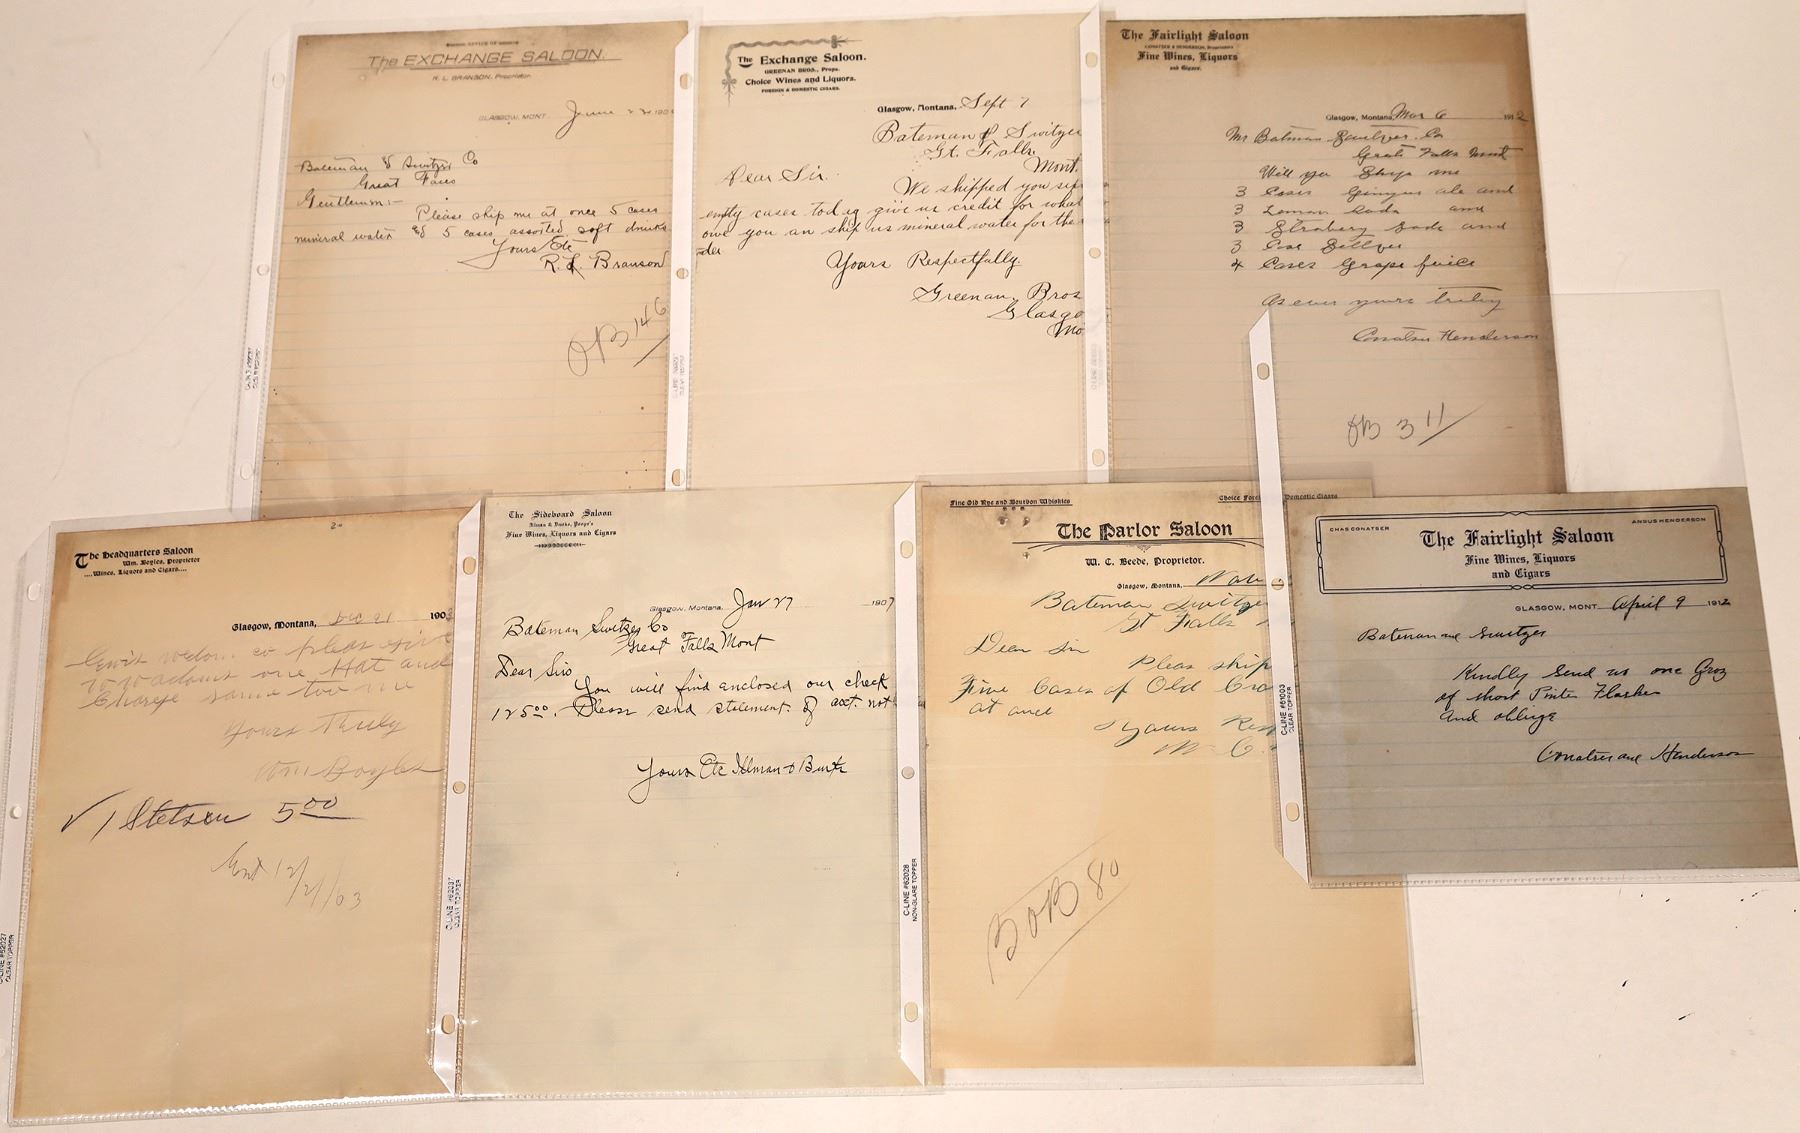 The EXCHANGE SALOON.
R. L. BRANSON, Proprietor.
GLASGOW, MONT. June 22 190
Bateman & Switzer Co
Great Falls
Gentlemen:-
Please ship me at once 5 cases
mineral water & 5 cases assorted soft drinks
Yours Etc
R L Branson
OB 146
The Exchange Saloon.
GREENAN BROS., Props.
Choice Wines and Liquors.
FOREIGN & DOMESTIC CIGARS.
Glasgow, Montana, Sept 7
Bateman & Switzer
Gt. Falls
Mont.
Dear Sir.
We shipped you six
empty cases today give us credit for what
owe you an ship us mineral water for the
der
Yours Respectfully
Greenan Bros
Glasgo
Mo
The Fairlight Saloon
CONATSER & HENDERSON, Proprietors
Fine Wines, Liquors
and Cigars.
Glasgow, Montana, Mar 6 1912
Mr Batman Switzer Co
Grate Falls Mont
Will you Ship me
3 Cases Ginger ale and
3 Lemon Soda and
3 Strabery Soda and
3 Case Seltzer
4 Cases Grape juice
As ever yours truley
Conatser Henderson
OB 311
The Headquarters Saloon
Wm. Boyles, Proprietor
....Wines, Liquors and Cigars....
Glasgow, Montana, Dec 21 1903
Lewis wedom co pleas give
adams one Hat and
Charge same too me
Yours Truly
Wm Boyles
√ 1 Stetson 5 00
Ent 12/21/03
The Sideboard Saloon
Fine Wines, Liquors and Cigars
Glasgow, Montana, Jan 27 1907
Bateman Switzer Co
Great Falls Mont
Dear Sirs
You will find enclosed our check
125 00. Please send statement of acct. not
Yours Etc Ilman & Burke
Fine Old Rye and Bourbon Whiskies
Choice Fore Domestic Cigars
The Parlor Saloon
W. C. Beede, Proprietor.
Glasgow, Montana,
Bateman Switze
Gt Falls
Dear Sir
Pleas ship
Five Cases of Old Cro
at once
Yours Res
W. C.
OB 80
CHAS CONATSER
ANGUS HENDERSON
The Fairlight Saloon
Fine Wines, Liquors
and Cigars
GLASGOW, MONT. April 9 1912
Bateman and Switzer
Kindly Send us one Groz
of short Pints Flasks
and oblige
Conatser and Henderson
C-LINE #62037
CLEAR TOPPER
C-LINE #62028
NON-GLARE TOPPER
C-LINE #61003
CLEAR TOPPER
C-LINE #62027
CLEAR TOPPER